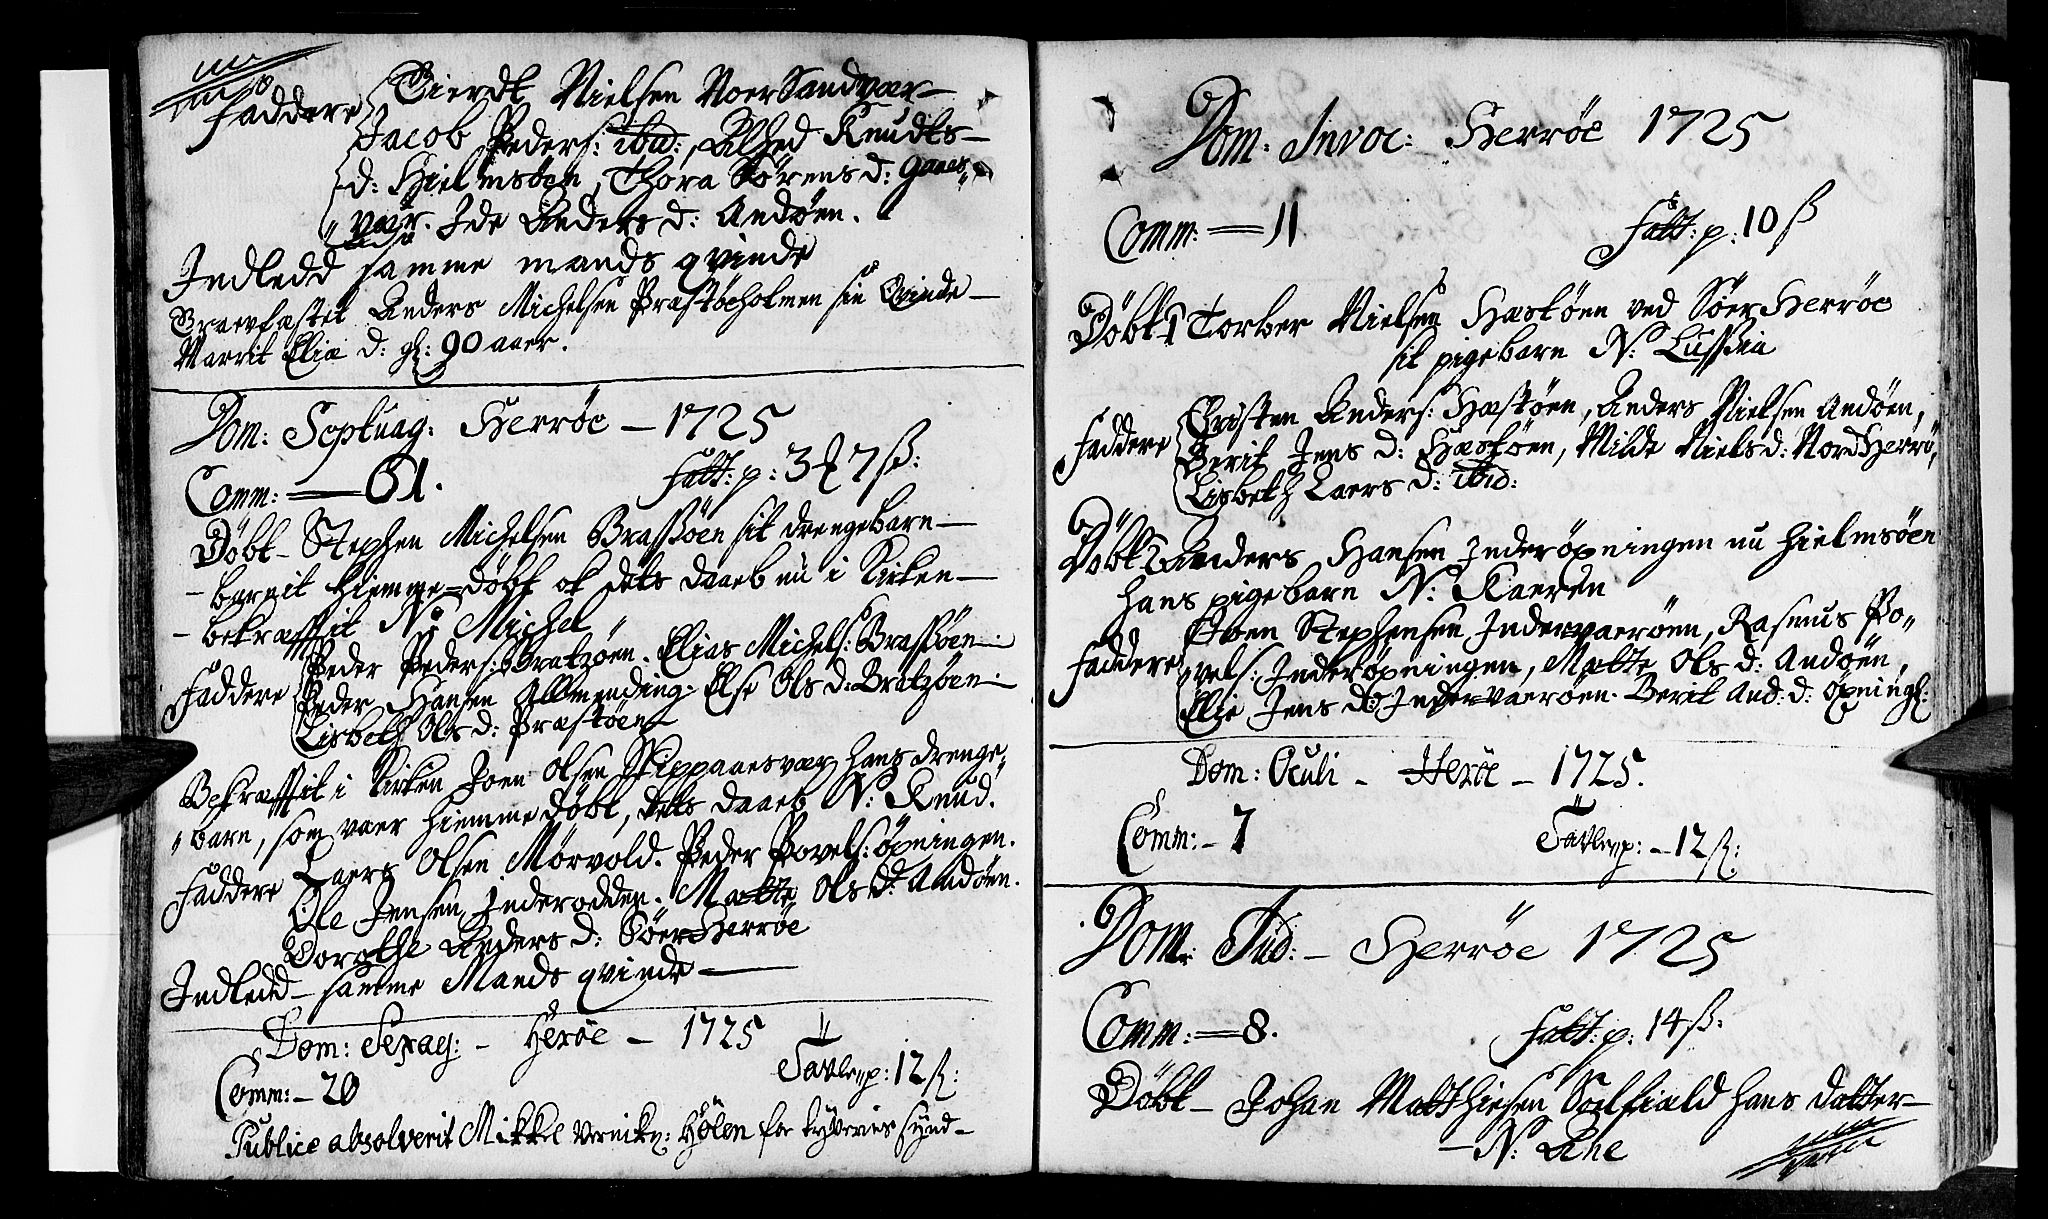 Faddere Gierdt Nielsen Noer Sandvær
Jacob Peders: ibid:, Alhed Knudts-
d: Hielmsöen, Thora Sörens d: Gaaes-
vær. Ide Anders d: Andøen.
Indledd samme mands qvinde
Graevfæstet Anders Michelsen Præstøeholmen sin Qvinde
Marrit Eliæ d: gl: 90 aaer.
Dom: Septuag: Herröe – 1725
Comm: = 61. Falt: p: 7 ß:
Döbt – Stephen Michelsen Braszöen sit drengebarn
barnit hiemme-döbt ok dets daaeb nu i Kirken
bekræftit N: Michel
Peder Peders: Bratzöen. Elias Michels: Braszöen
Faddere Peder Hansen Allmending. Else Ols d: Bratzöen.
Lisbeth Ols d: Præstöen
Bekræftit i Kirken Joen Olsen Skippaaesvær hans drenge-
barn, som vaer hiemme döbt, dets daaeb N: Knud.
Faddere Laers Olsen Mörvold. Peder Povels: öpningen.
Ole Jensen Inderodden. Mætte Ols d: Andöen.
Dorothe Anders d: SöerHerröe
Indledd – samme Mands qvinde
Dom: Sexag: – Heröe – 1725
Comm: – 20 Tavlen p: 12 ß:
Publice absolverit Mikkel Hölen for tyveries synd
Dom: Invoc: Herröe 1725
Comm: = 11 Falt: p: 10 ß
Döbt 1 Torber Nielsen Hæstöen ved Söer Herröe
sit pigebarn N: Lussia
Christen Anders: Hæstöen, Anders Nielsen Andöen,
Faddere Berit Jens d: Hæstöen, Milde Niels d: Nord Herrö,
Lisbeth Laers d: ibid:
Döbt 2 Anders Hansen Inderöpningen nu Hielmsöen
hans pigebarn N: Kaeren
Oven Stephensen Indervaeröen, Rasmus Po-
Faddere vels: Inderöpningen, Mætte Ols d: Andöen,
Elje Jens d: Indervaeröen. Berit And: d: öpning:
Dom: Oculi – Heröe – 1725.
Comm: – 7 Tavlen p: – 12 ß:
Dom: Jud: – Herröe 1725
Comm: = 8. Falt: p: 14 ß:
Döbt – Johan Matthiesen Soelfiald hans datter
N: Ane